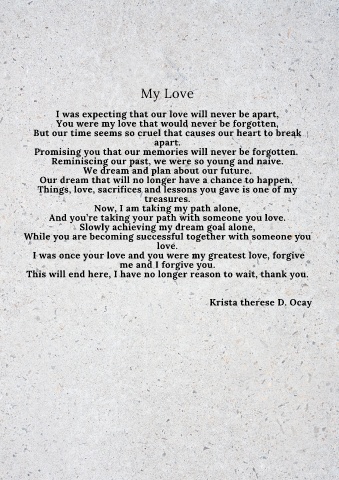 My Love
I was expecting that our love will never be apart,
You were my love that would never be forgotten,
But our time seems so cruel that causes our heart to break
apart.
Promising you that our memories will never be forgotten.
Reminiscing our past, we were so young and naive.
We dream and plan about our future.
Our dream that will no longer have a chance to happen.
Things, love, sacrifices and lessons you gave is one of my
treasures.
Now, I am taking my path alone,
And you're taking your path with someone you love.
Slowly achieving my dream goal alone,
While you are becoming successful together with someone you
love.
I was once your love and you were my greatest love, forgive
me and I forgive you.
This will end here, I have no longer reason to wait, thank you.
Krista therese D. Ocay